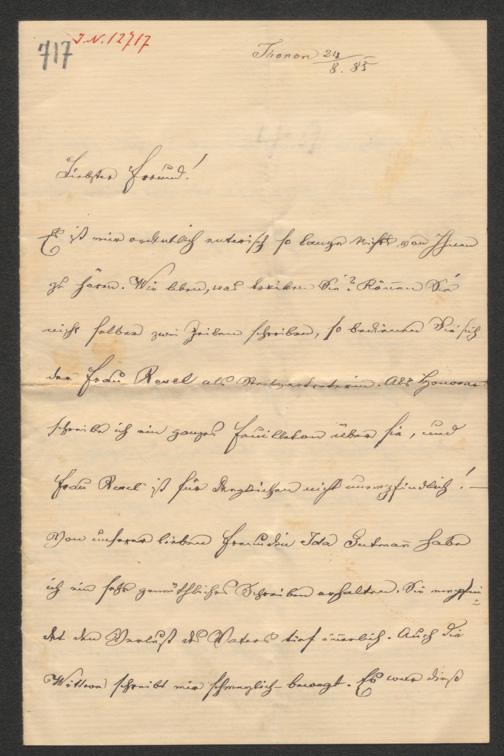 717
J.N. 12717
Thonon 24/8. 85
Liebster Freund!
Es ist mir ordentlich enterisch so lange Nichts von Ihnen
zu hören. Wie leben, was treiben Sie? Können Sie
nicht selber zwei Zeilen schreiben, so bedienen Sie sich
der Frau Rexel als. Als Honorar
schreibe ich ein ganzes Feuilleton über sie, und
Frau Rexel ist für dergleichen nicht unempfindlich! –
Von unserer lieben Freundin Ida Gutmañ habe
ich ein sehr gemüthliches Schreiben erhalten. Sie empfin=
det den Verlust des Vaters tief iñerlich. Auch die
Wittwe schreibt mir schmerzlich-bewegt. Es war dieß